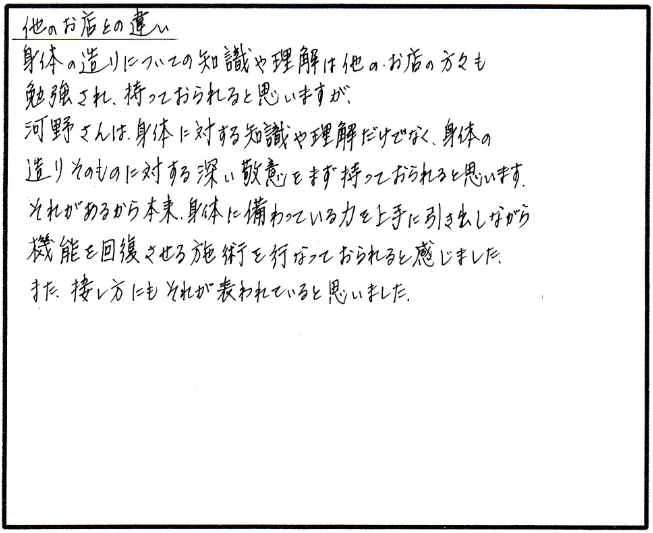 他のお店との違い
身体の造りについての知識や理解は他の.お店の方々も
勉強され、持っておられると思いますが、
河野さんは、身体に対する知識や理解だけでなく、身体の
造りそのものに対する深い敬意をまず持っておられると思います。
それがあるから本来、身体に備わっている力を上手に引き出しながら
機能を回復させる施術を行なっておられると感じました。
また、接し方にもそれが表われていると思いました。